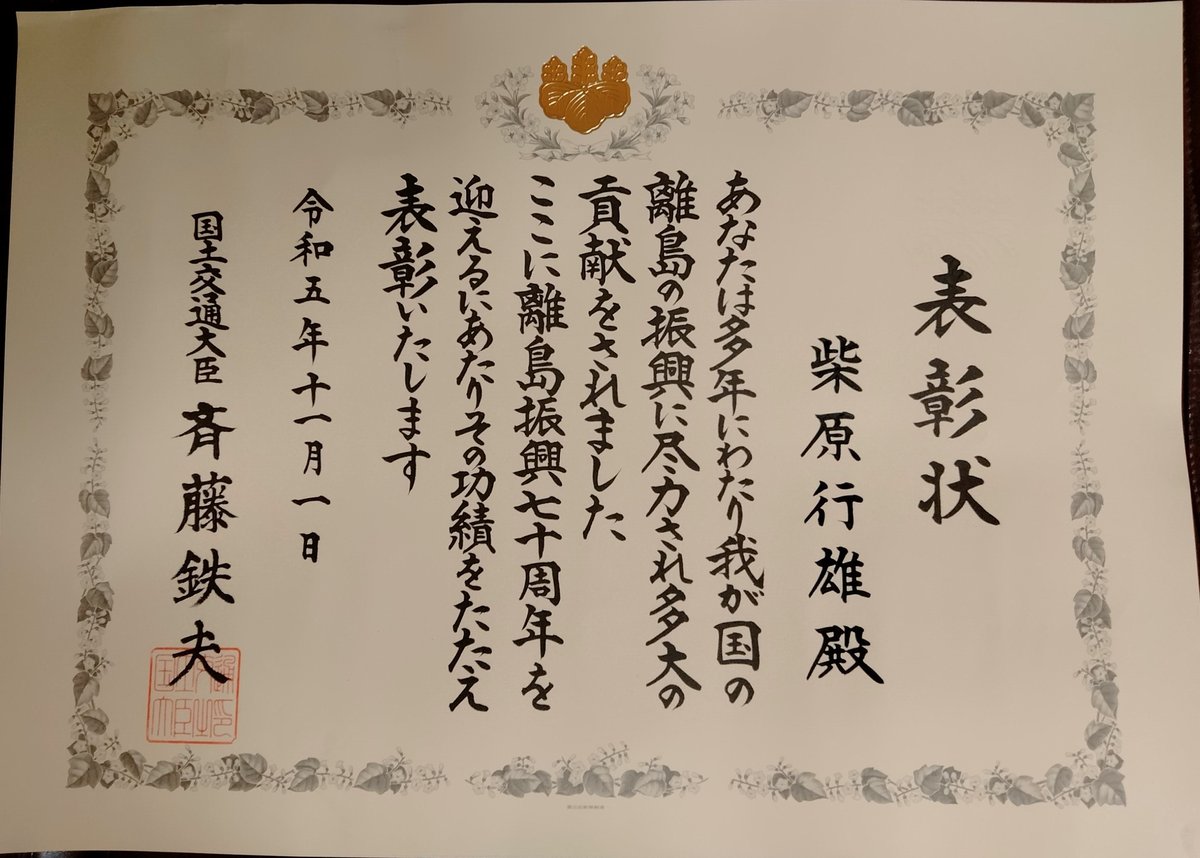 表彰状
柴原行雄殿
あなたは多年にわたり我が国の
離島の振興に尽力され多大の
貢献をされました
ここに離島振興七十周年を
迎えるにあたりその功績をたたえ
表彰いたします
令和五年十一月一日
国土交通大臣 斉藤鉄夫